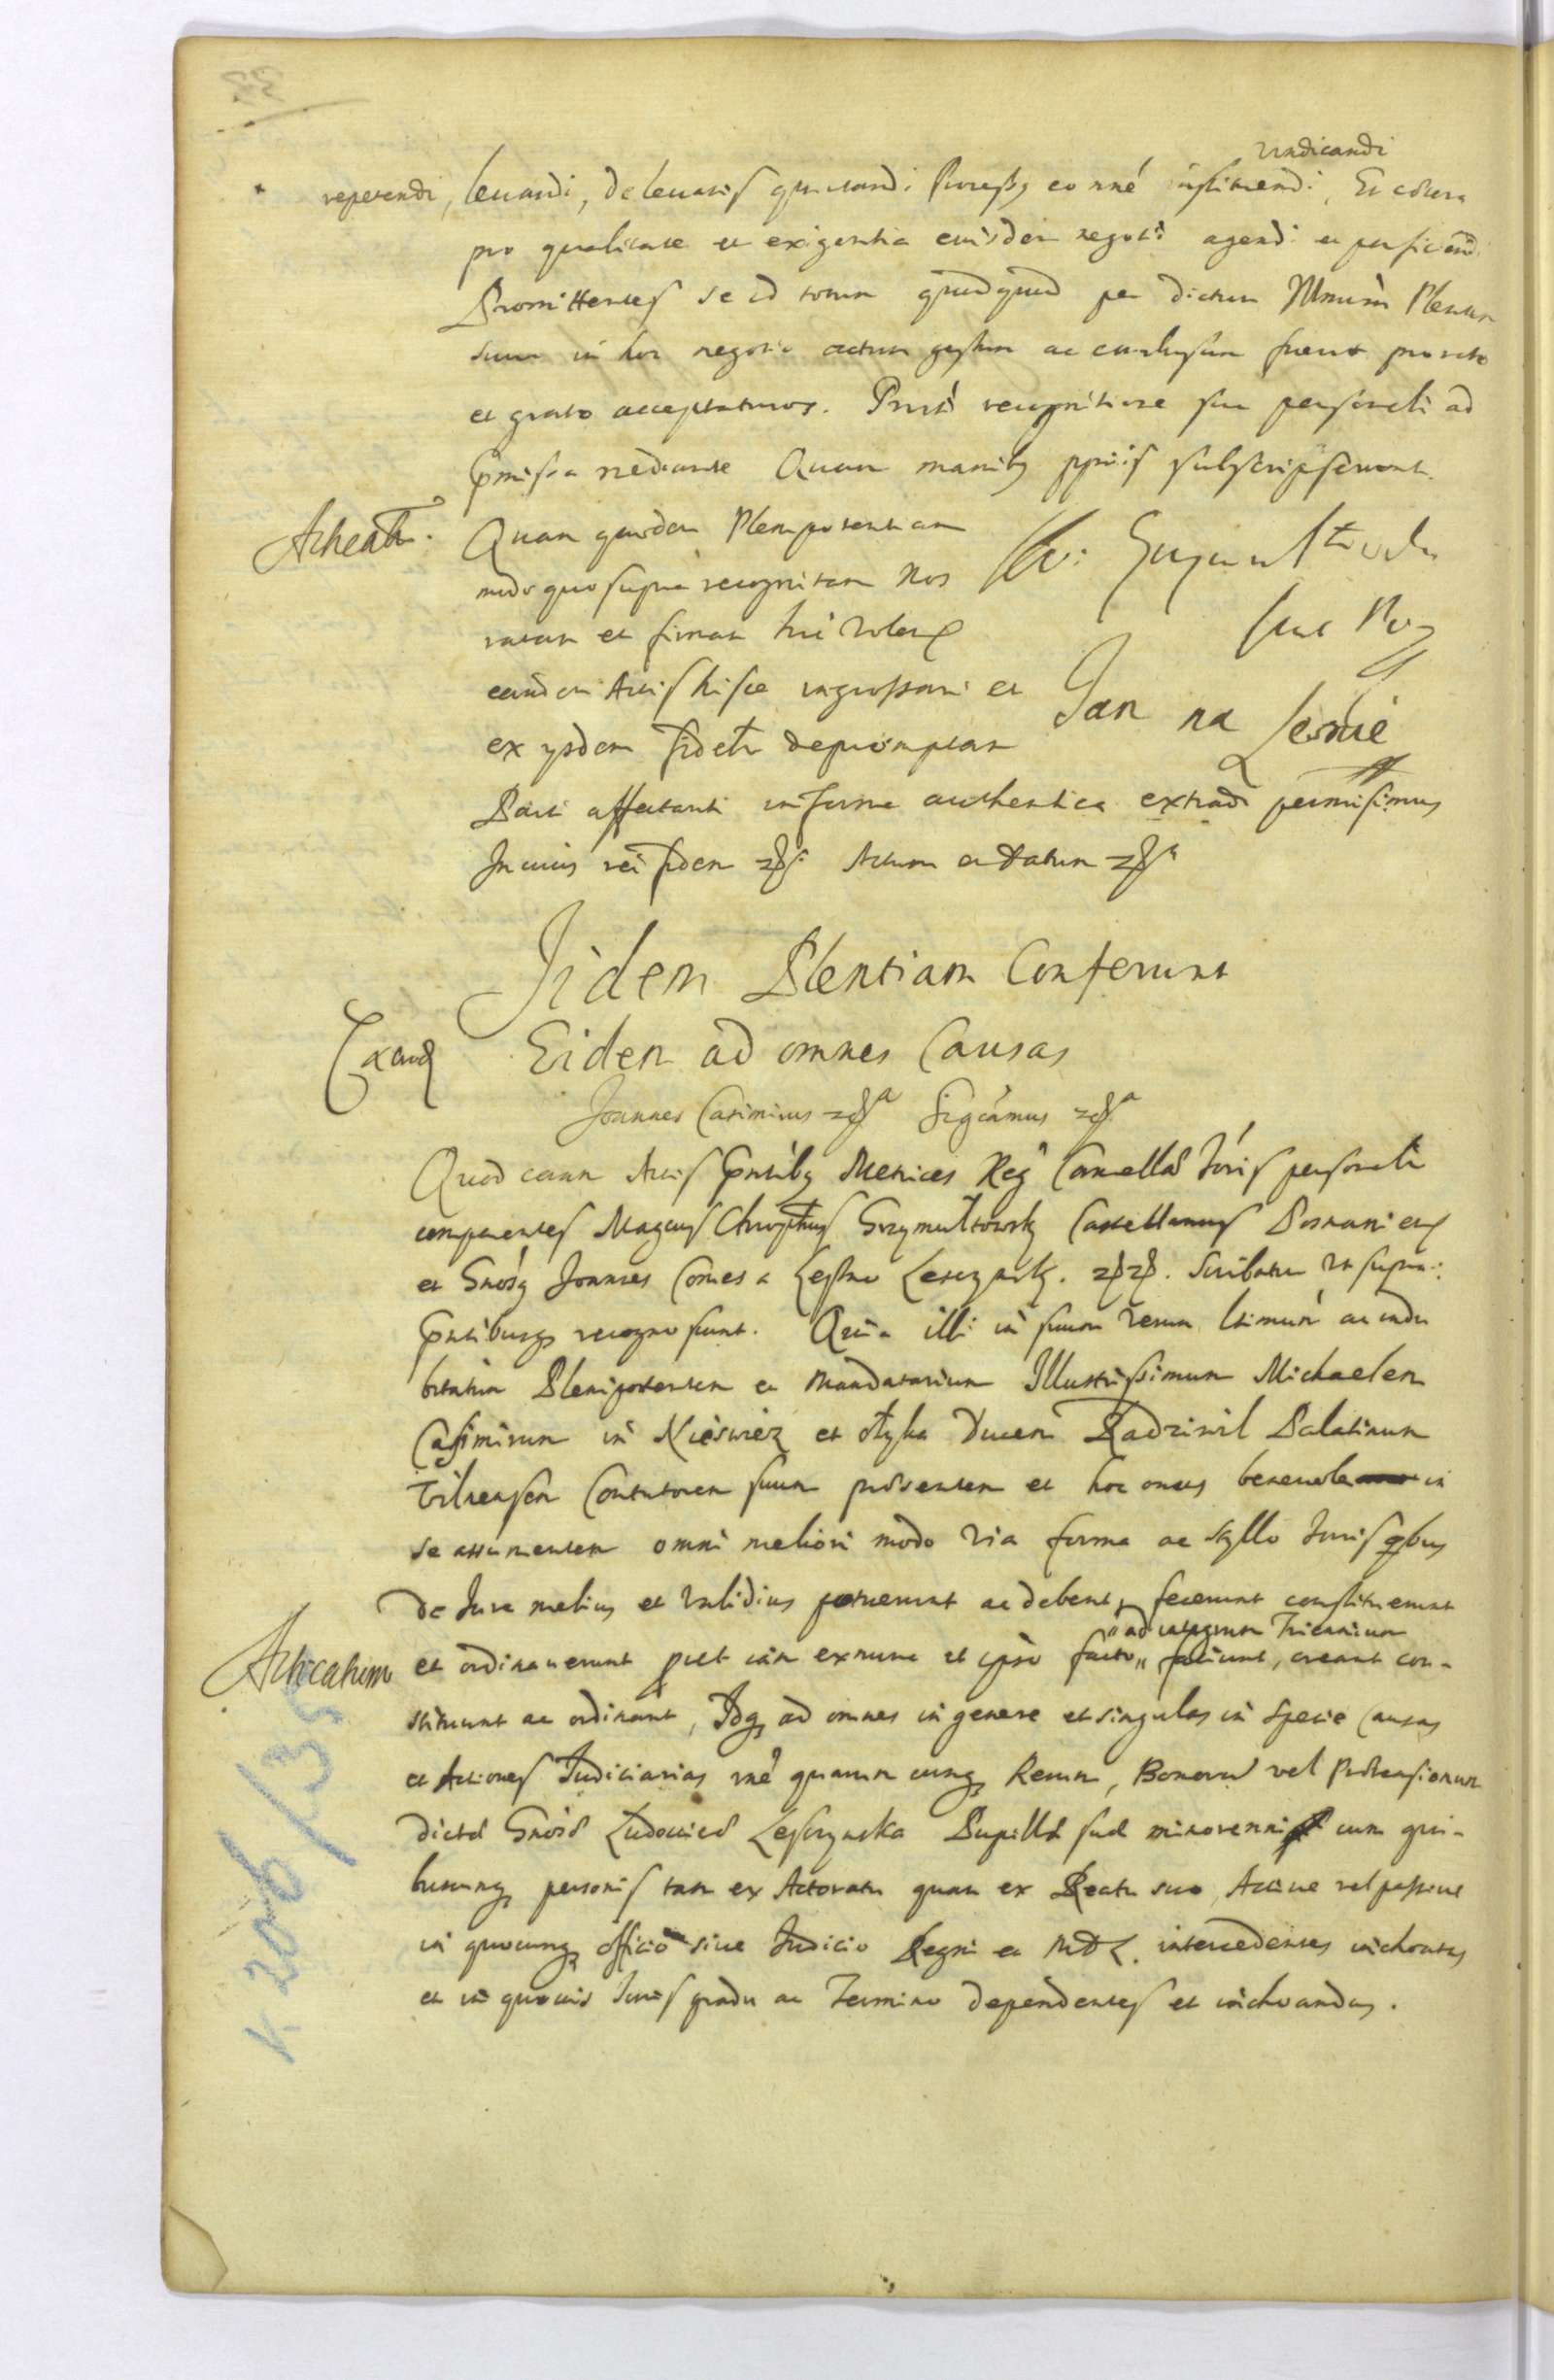 vindicandi
repetendi, levandi, de levatis quietandi Processus eo nné instituendi, Et cætera
pro qualitate et exigentia eiusdem negotii agendi et perficiendi
Promittentes se id totum quidquid per dictum Illmum Plentem
suum in hoc negotio actum gestum ac conclusum fuerit pro rato
et grato accepturos. Pnti recognitione sua personali ad
pmissa mediante Quam manibus ppriis subscripserunt.
Quam quidem Plenipotentiam
modo quo supra recognitam Nos
ratam et firmam hri volentes
eandem Actis hisce ingrossari et
ex ysdem fidelr depromptam
Jan na Lesnie
Parti affectanti in forma authentica extradi permisimus
In cuius rei fidem Actum et Datum
Iidem Plentiam Conferunt
Eidem ad omnes Causas
Joannes Casimirus Sigcamus
Quod coram Actis pntibus Metrices Reg Cancellæ Juris personalr
comparentes Magcus Chrophus Grzymułtowsky Castellanus Posnanien
et Gnosus Joannes Comes a Leszno Leszczynsky. Scribatur ut supra:
pntibusque recognoscunt. Quia illi in suum verum ltimum ac indu
bitatum Plenipotentem et Mandatarium Illustrissimum Michaelem
Casimirum in Nieswiez et Ołyka Ducem Radziwil Palatinum
Vilnensem Contutorem suum præsentem et hoc onus benevole in
se assumentem omni meliori modo via forma ac styllo Juris qbus
de Jure melius et validius potuerunt ac debent, fecerunt constituerunt
"ad integrum Triennium
et ordinaverunt put iam exnunc et ipso facto" faciunt, creant con-
stituunt ac ordinant, Idque ad omnes in genere et singulas in specie Causas
et Actiones Judiciarias rne quarumcunque Rerum, Bonorum vel Prætensionum
dictæ Gnosæ Ludovicæ Leszczynska Pupillæ suæ minorennis cum qui-
buscunque personis tam ex Actoratu quam ex Reatu suo, Active vel passive
in quocunque officio sive Judicio Regni et MDL. intercedentes inchoatas
et in quovis Juris gradu ac Termino dependentes et inchoandas.